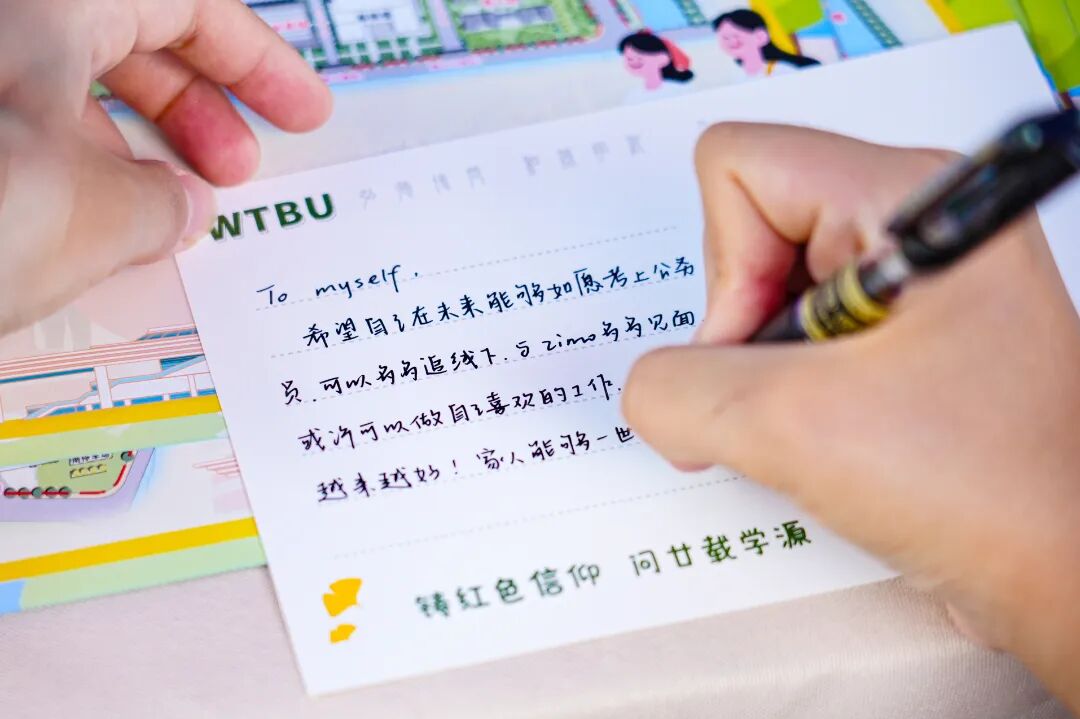 WTBU
To myself,
希望自己在未来能够如愿考上公务
员.可以多多追线下.与zimo多多见面
或许可以做自己喜欢的工作.
越来越好！家人能够一世
铸红色信仰 问廿载学源